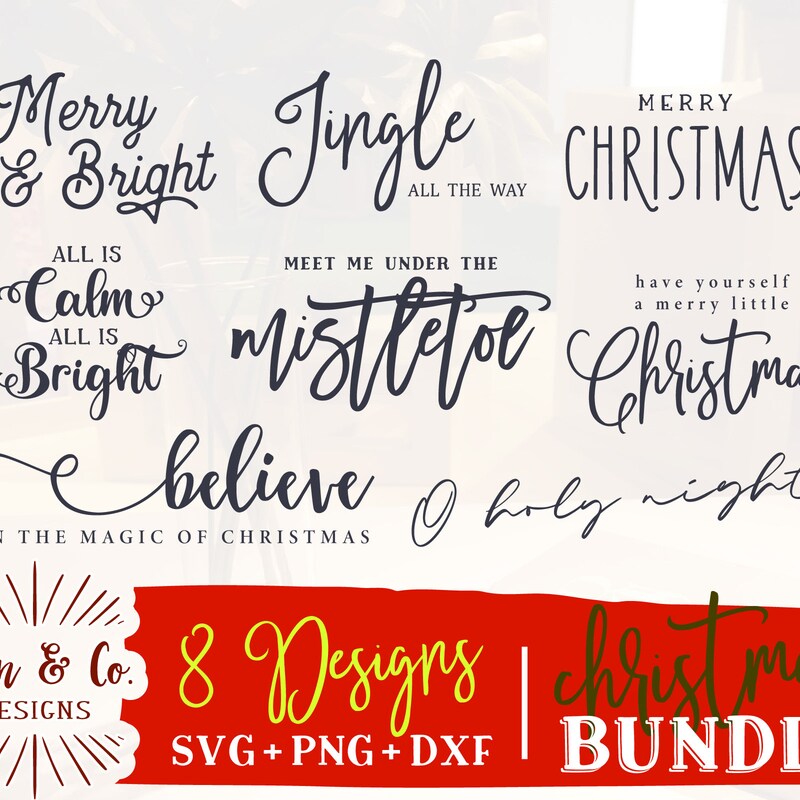 Merry
& Bright
Jingle
ALL THE WAY
MERRY
CHRISTMAS
ALL IS
Calm
ALL IS
Bright
MEET ME UNDER THE
mistletoe
have yourself
a merry little
Christma
believe
N THE MAGIC OF CHRISTMAS
O holy night
n & Co.
ESIGNS
8 Designs
SVG+PNG+DXF
christma
BUNDL